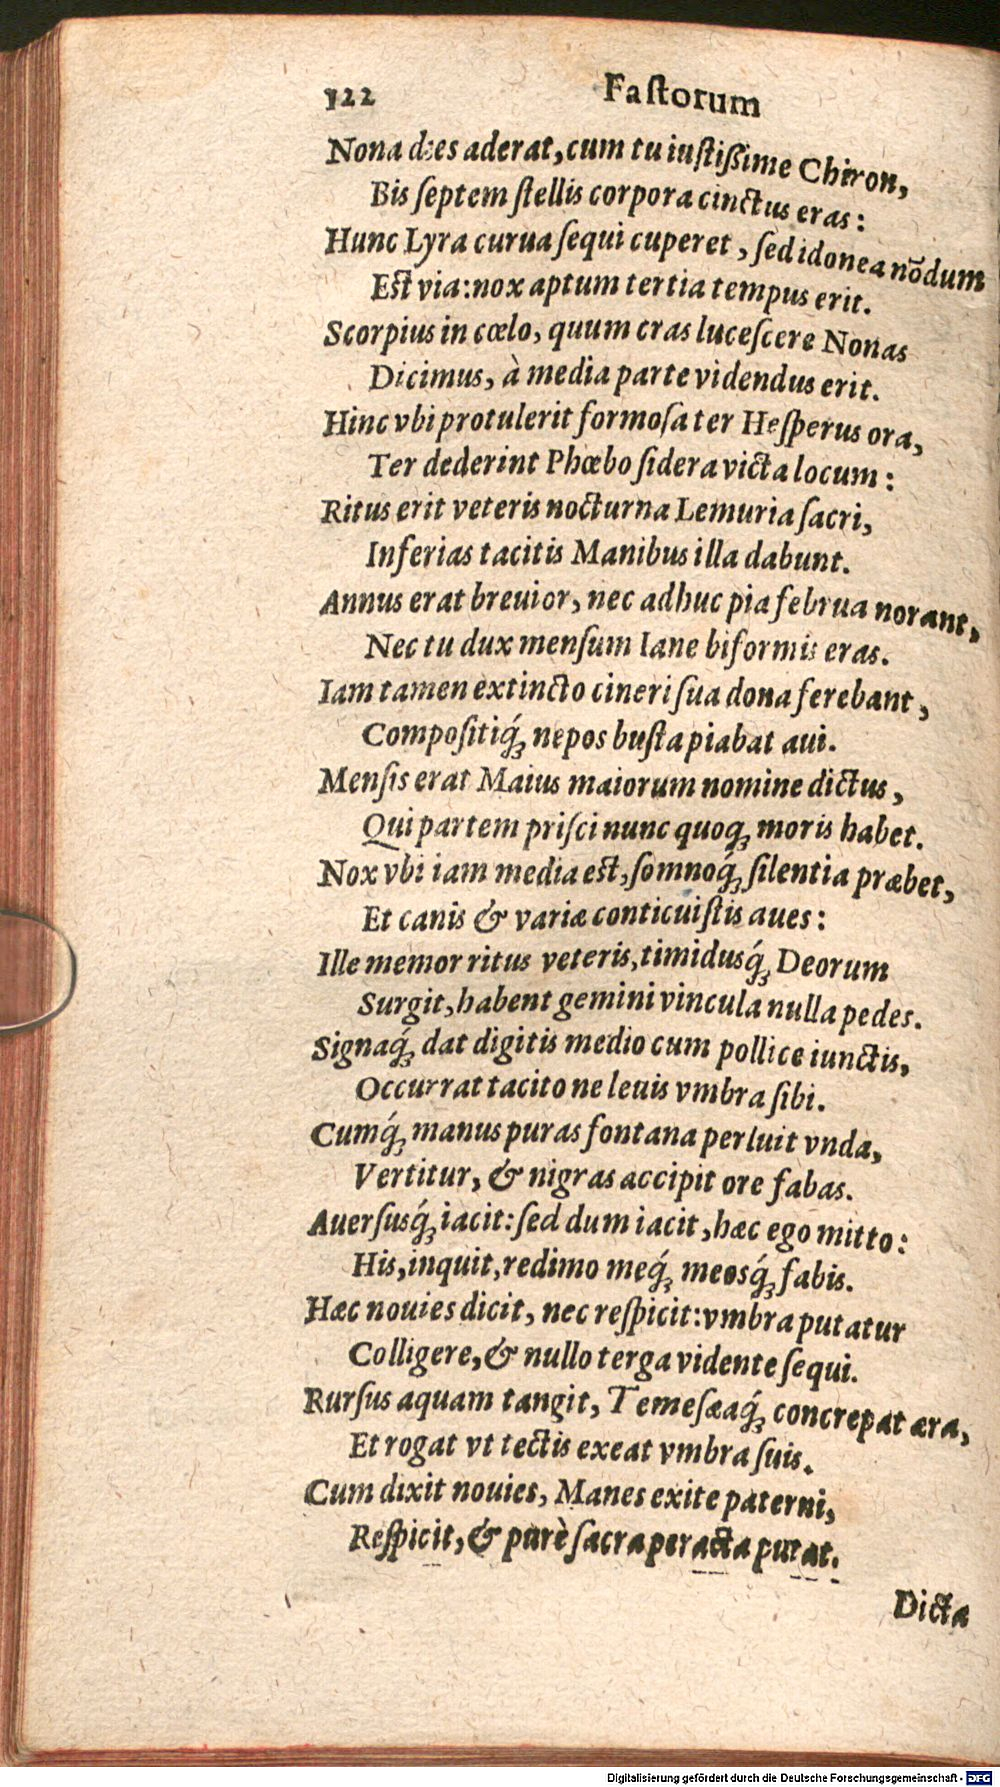 122 Faſtorum
Nona dies aderat, cum tu iuſtißime Chiron,
Bis ſeptem ſtellis corpora cinctus eras:
Hunc Lyra curua ſequi cuperet, ſed idonea nōdum
Eſt via: nox aptum tertia tempus erit.
Scorpius in cœlo, quum cras luceſcere Nonas
Dicimus, à media parte videndus erit.
Hinc vbi protulerit formoſa ter Heſperus ora,
Ter dederint Phœbo ſidera victa locum:
Ritus erit veteris nocturna Lemuria ſacri,
Inferias tacitis Manibus illa dabunt.
Annus erat breuior, nec adhuc pia februa norant,
Nec tu dux menſum Iane biformis eras.
Iam tamen extincto cineri ſua dona ferebant,
Compoſitiq́; nepos buſta piabat aui.
Menſis erat Maius maiorum nomine dictus,
Qui partem priſci nunc quoq; moris habet.
Nox vbi iam media eſt, ſomnoq́; ſilentia præbet,
Et canis & variæ conticuiſtis aues:
Ille memor ritus veteris, timidusq́; Deorum
Surgit, habent gemini vincula nulla pedes.
Signaq́; dat digitis medio cum pollice iunctis,
Occurrat tacito ne leuis vmbra ſibi.
Cumq́; manus puras fontana perluit vnda,
Vertitur, & nigras accipit ore fabas.
Auerſusq́; iacit: ſed dum iacit, hæc ego mitto:
His, inquit, redimo meq́; meosq́; fabis.
Hæc nouies dicit, nec reſpicit: vmbra putatur
Colligere, & nullo terga vidente ſequi.
Rurſus aquam tangit, Temeſæaq́; concrepat æra,
Et rogat vt tectis exeat vmbra ſuis.
Cum dixit nouies, Manes exite paterni,
Reſpicit, & purè ſacra peracta putat.
Dicta
Digitalisierung gefördert durch die Deutsche Forschungsgemeinschaft - DFG